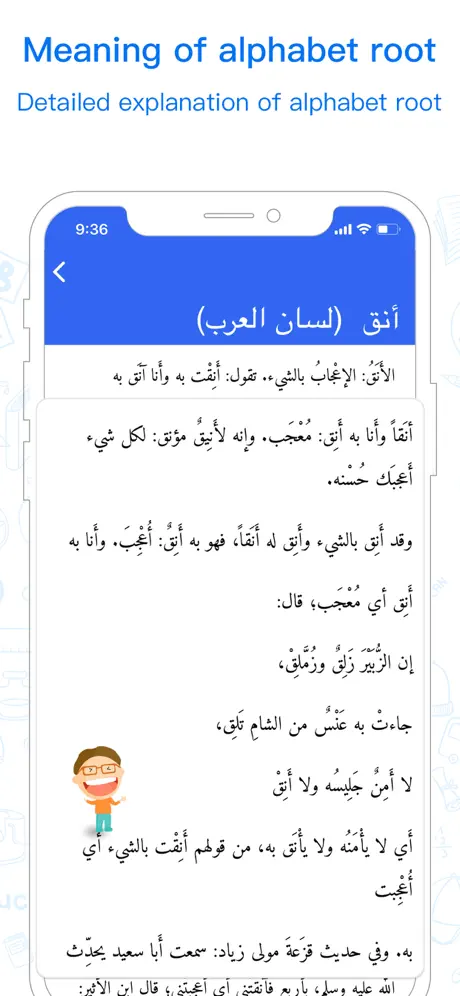 Meaning of alphabet root
Detailed explanation of alphabet root
9:36
أنق (لسان العرب)
الأَنَقُ: الإعْجابُ بالشيء. تقول: أَنِقْت به وأَنا آنَق به
أنَقاً وأَنا به أَنِق: مُعْجَب. وإنه لأَنِيقٌ مؤنق: لكل شيء
أَعجبَك حُسْنه.
وقد أَنِق بالشيء وأَنِق له أَنَقاً، فهو به أَنِقٌ: أُعْجِبَ. وأَنا به
أَنِق أي مُعْجَب؛ قال:
إن الزُّبَيْرَ زَلِقٌ وزُمَّلِقْ،
جاءتْ به عَنْسٌ من الشامِ تَلِق،
لا أَمِنٌ جَلِيسُه ولا أَنِقْ
أَي لا يأْمَنُه ولا يأْنَق به، من قولهم أَنِقْت بالشيء أَي
أُعْجِبت
به. وفي حديث قزَعةَ مولى زياد: سمعت أَبا سعيد يحدِّث
الله عليه وسلم، بأَربع فآنقتني أَي أَعجبتني؛ قال ابن الأثير: